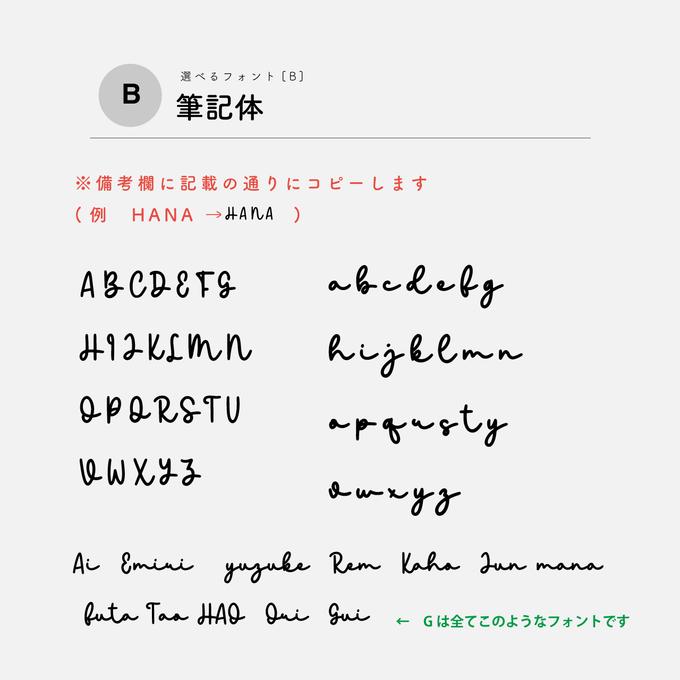 B
選べるフォント［B］
筆記体
※備考欄に記載の通りにコピーします
（例 HANA →HANA ）
ABCDEFG
abcdefg
HIJKLMN
hijklmn
OPQRSTU
opqrsty
VWXYZ
vwxyz
Ai Emiri yuzuke Rem Kaho Jun mana
futa Tao HAO Ori Gui ← Gは全てこのようなフォントです